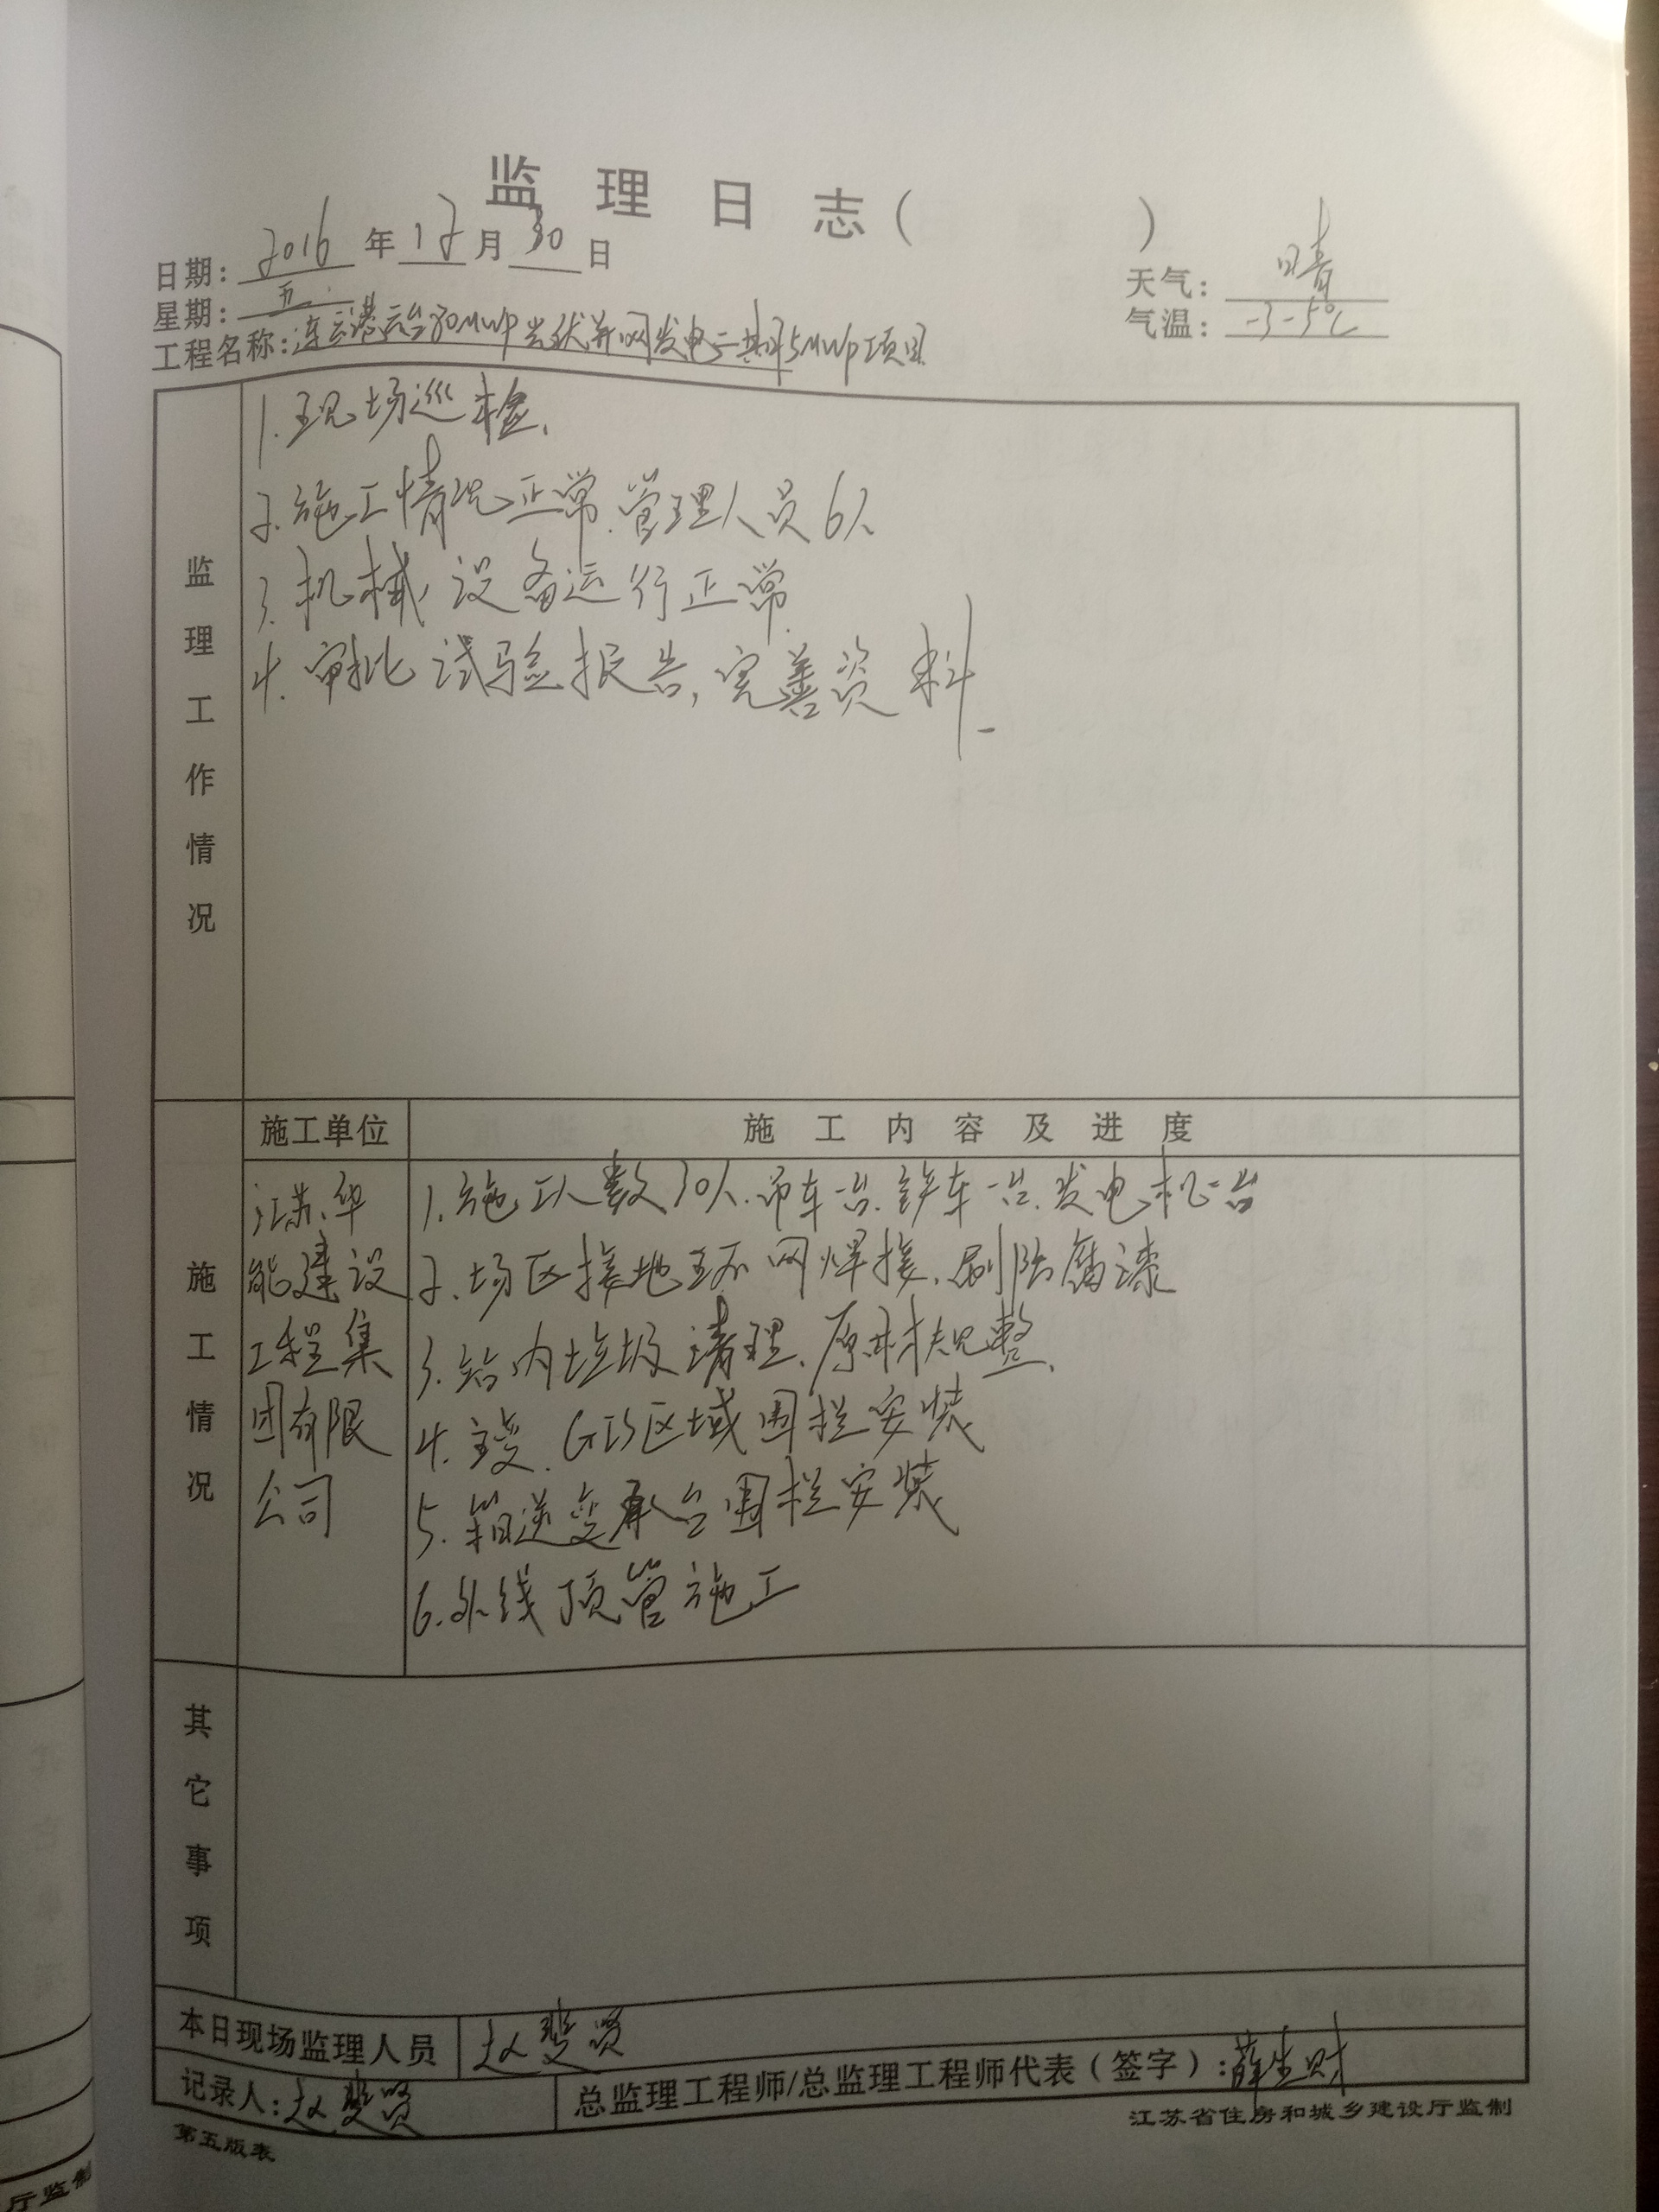 监理日志（ ）
日期：2016年12月30日
天气：晴
星期：五
气温：-3-5℃
工程名称：连云港云台30MWp光伏并网发电二期25MWp项目
监理工作情况
1.现场巡检、
2.施工情况正常.管理人员6人
3.机械、设备运行正常.
4.审批试验报告，完善资料.
施工单位
施工内容及进度
施工情况
江苏华
能建设
工程集
团有限
公司
1.施工人数30人.吊车一台.铲车一台.发电机二台
2.场区接地环网焊接、刷防腐漆
3.站内垃圾清理、原材规整、
4.主变、GIS区域围栏安装
5.箱逆变承台围栏安装
6.外线顶管施工
其它事项
本日现场监理人员
赵斐贤
记录人：赵斐贤
总监理工程师/总监理工程师代表（签字）：薛生财
第五版表
江苏省住房和城乡建设厅监制
厅监制